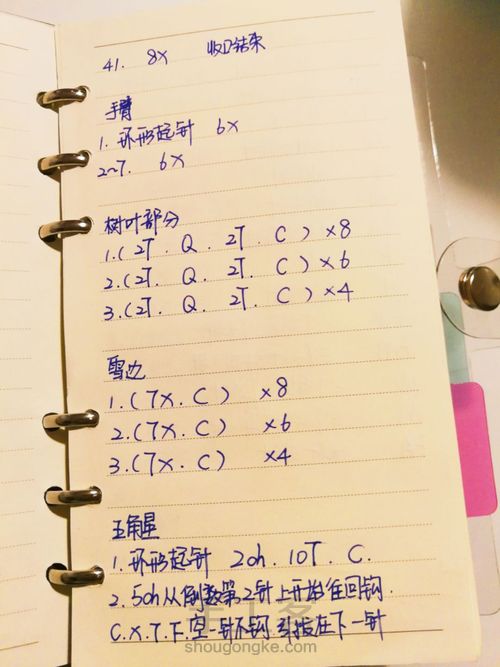 41. 8X 收口结束
手臂
1. 环形起针 6X
2~7. 6X
树叶部分
1.(2T. Q. 2T. C) ×8
2.(2T. Q. 2T. C) ×6
3.(2T. Q. 2T. C) ×4
雪边
1.(7X. C) ×8
2.(7X. C) ×6
3.(7X. C) ×4
五角星
1. 环形起针 2ch. 10T. C.
2. 5ch从倒数第2针上开始往回钩.
C.X.T.F.空一针不钩 引拔在下一针
shougongke.com